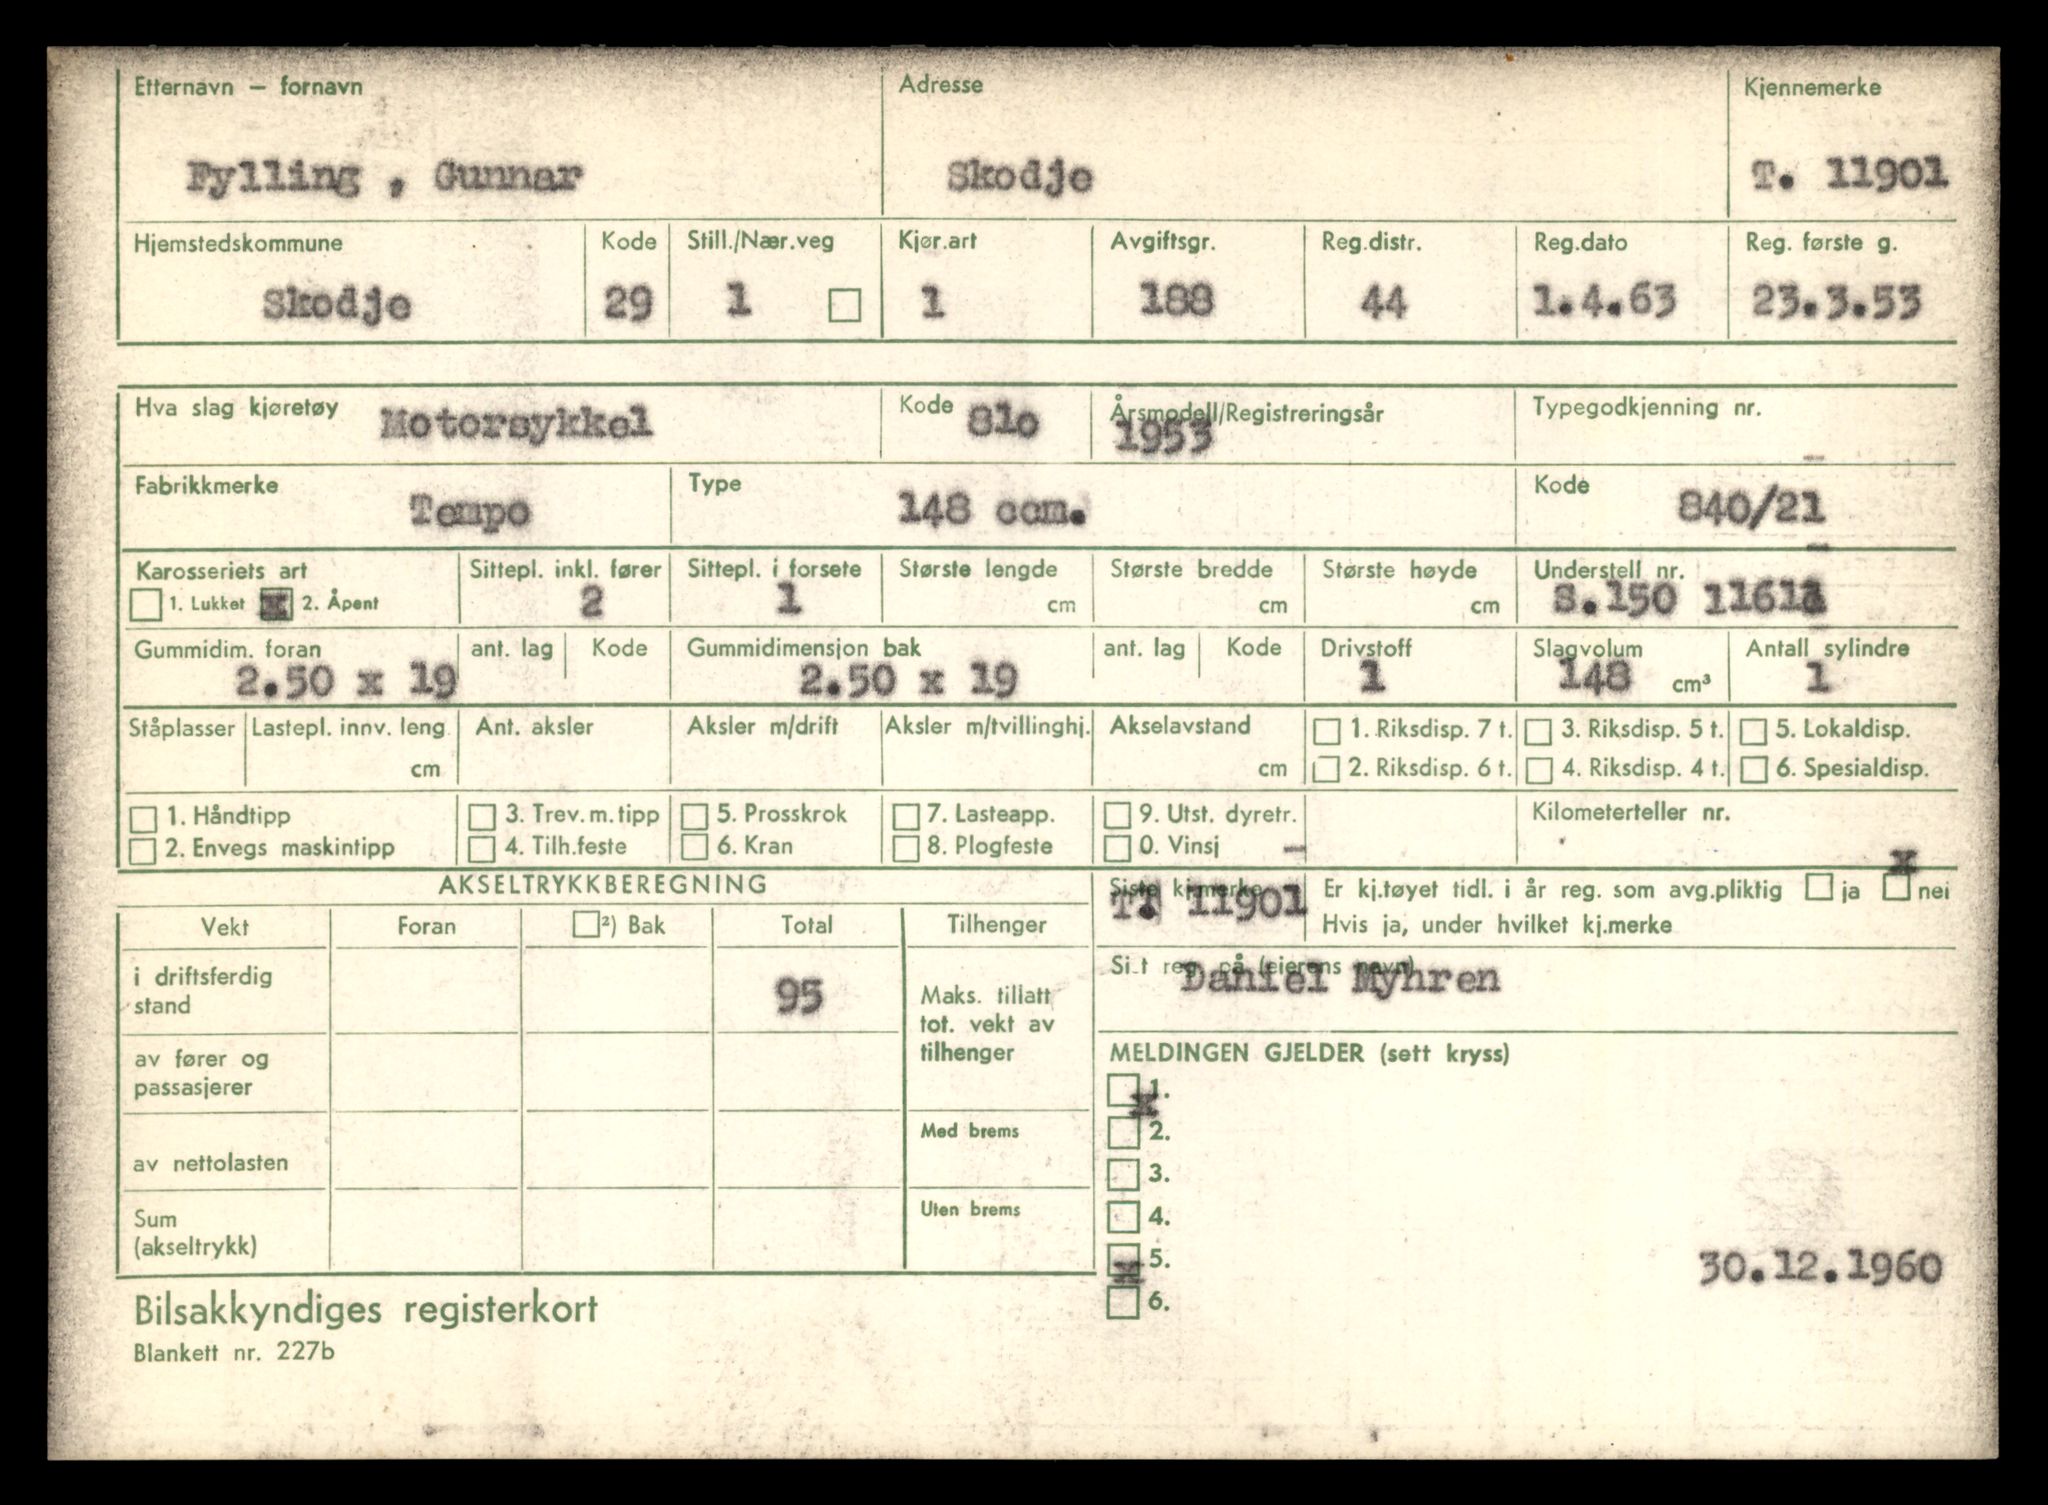 Etternavn – fornavn Adresse Kjennemerke
Fylling , Gunnar Skodje T. 11901
Hjemstedskommune Kode Still./Nær.veg Kjør.art Avgiftsgr. Reg.distr. Reg.dato Reg. første g.
Skodje 29 1 1 188 44 1.4.63 23.3.53
Hva slag kjøretøy Motorsykkel Kode 810 Årsmodell/Registreringsår Typegodkjenning nr.
1953 –
Fabrikkmerke Type Kode
Tempo 148 ccm. 840/21
Karosseriets art Sittepl. inkl. fører Sittepl. i forsete Største lengde Største bredde Største høyde Understell nr.
1. Lukket x 2. Åpent 2 1 cm cm cm S.150
Gummidim. foran ant. lag Kode Gummidimensjon bak ant. lag Kode Drivstoff Slagvolum Antall sylindre
2.50 x 19 2.50 x 19 1 148 cm³ 1
Ståplasser Lastepl. innv. leng. Ant. aksler Aksler m/drift Aksler m/tvillinghj. Akselavstand 1. Riksdisp. 7 t. 3. Riksdisp. 5 t. 5. Lokaldisp.
cm cm 2. Riksdisp. 6 t. 4. Riksdisp. 4 t. 6. Spesialdisp.
1. Håndtipp 3. Trev. m. tipp 5. Prosskrok 7. Lasteapp. 9. Utst. dyretr. Kilometerteller nr.
2. Envegs maskintipp 4. Tilh.feste 6. Kran 8. Plogfeste 0. Vinsj –
AKSELTRYKKBEREGNING Siste kj.merke Er kj.tøyet tidl. i år reg. som avg.pliktig ja x nei
T. 11901 Hvis ja, under hvilket kj.merke
Vekt Foran ²) Bak Total Tilhenger
Sist reg. på (eierens navn)
Daniel Myhren
i driftsferdig
stand 95
Maks. tillatt
tot. vekt av
tilhenger
av fører og
passasjerer
MELDINGEN GJELDER (sett kryss)
1.
x
2.
3.
4.
5.
x
6.
Med brems
av nettolasten
Uten brems
Sum
(akseltrykk)
30.12.1960
Bilsakkyndiges registerkort
Blankett nr. 227b